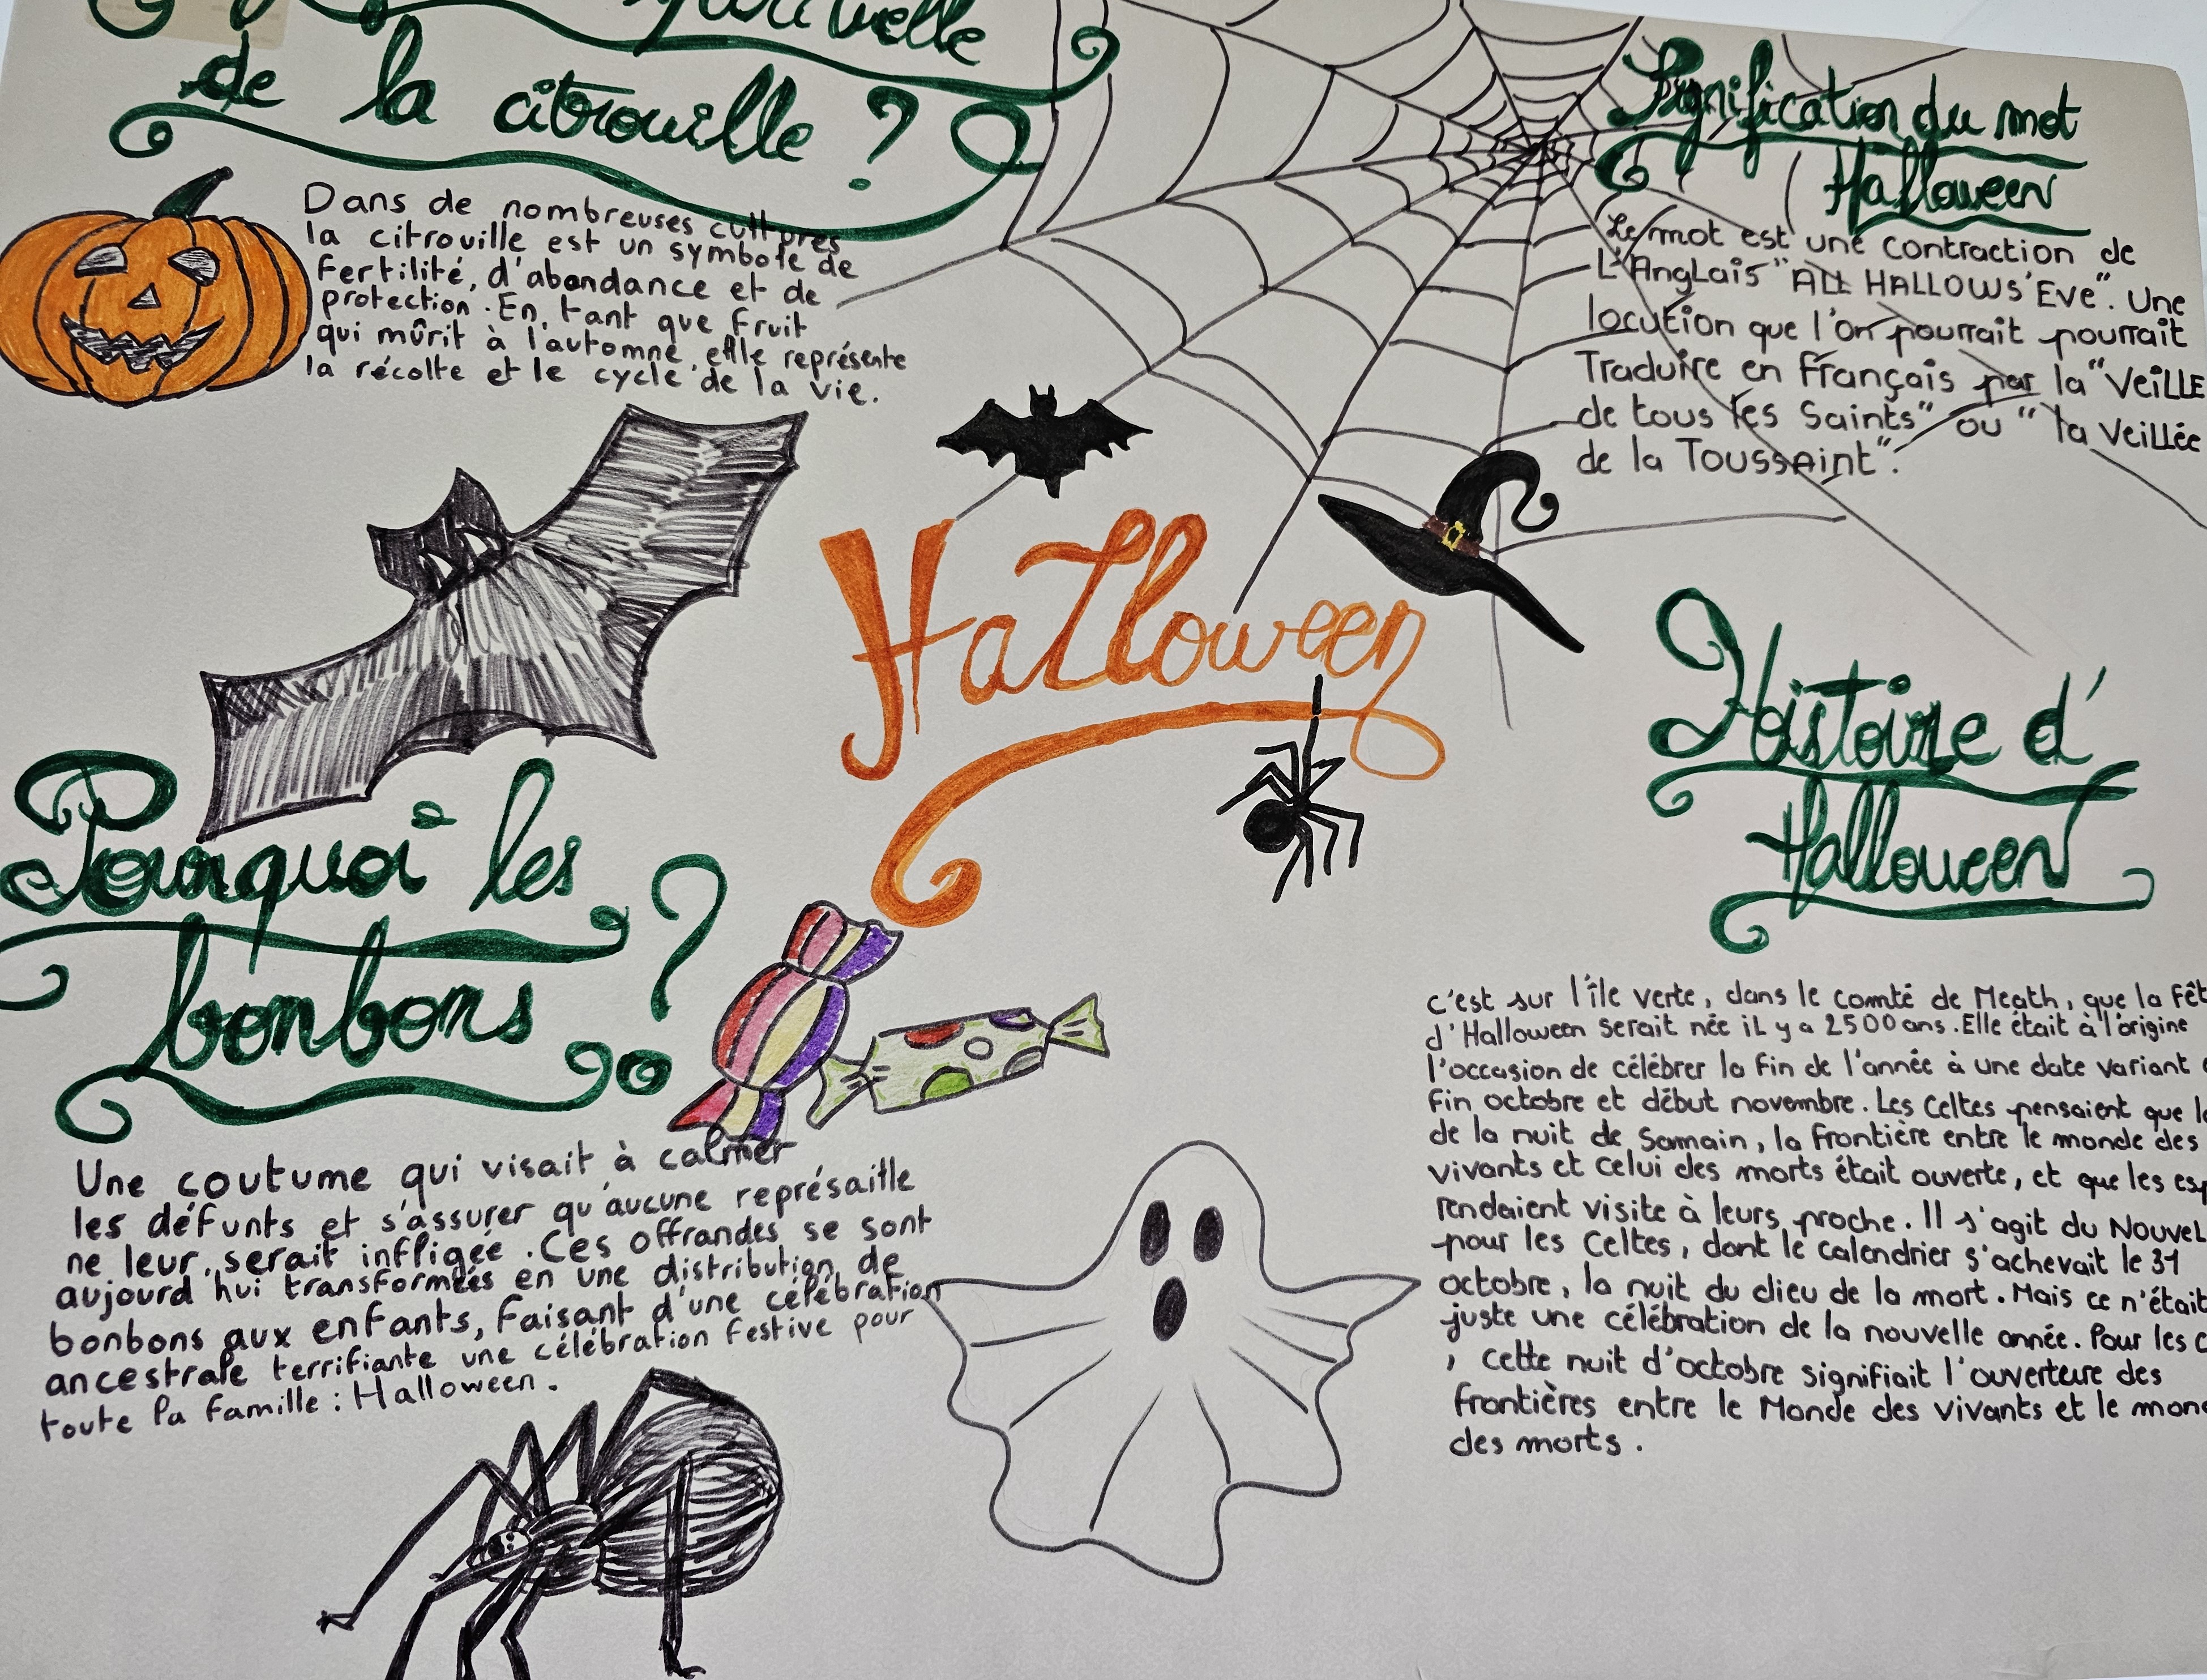 de la citrouille ?
Dans de nombreuses cultures
la citrouille est un symbole de
fertilité, d'abondance et de
protection. En tant que fruit
qui mûrit à l'automne, elle représente
la récolte et le cycle de la vie.
Signification du mot
Halloween
Le mot est une contraction de
L'Anglais "ALL HALLOWS'EVE". Une
locution que l'on pourrait pourrait
Traduire en Français par la "VEILLE
de tous les Saints" ou "la Veillée
de la Toussaint".
Halloween
Pourquoi les
bonbons ?
Une coutume qui visait à calmer
les défunts et s'assurer qu'aucune représaille
ne leur serait infligée. Ces offrandes se sont
aujourd'hui transformées en une distribution de
bonbons aux enfants, faisant d'une célébration
ancestrale terrifiante une célébration festive pour
toute la famille : Halloween.
Histoire d'
Halloween
c'est sur l'île verte, dans le comté de Meath, que la Fêt
d'Halloween serait née il y a 2500 ans. Elle était à l'origine
l'occasion de célébrer la fin de l'année à une date variant
fin octobre et début novembre. Les Celtes pensaient que
de la nuit de Samain, la frontière entre le monde des
vivants et celui des morts était ouverte, et que les esp
rendaient visite à leurs proche. Il s'agit du Nouvel
pour les Celtes, dont le calendrier s'achevait le 31
octobre, la nuit du dieu de la mort. Mais ce n'était
juste une célébration de la nouvelle année. Pour les
, cette nuit d'octobre signifiait l'ouverture des
frontières entre le Monde des vivants et le mon
des morts.